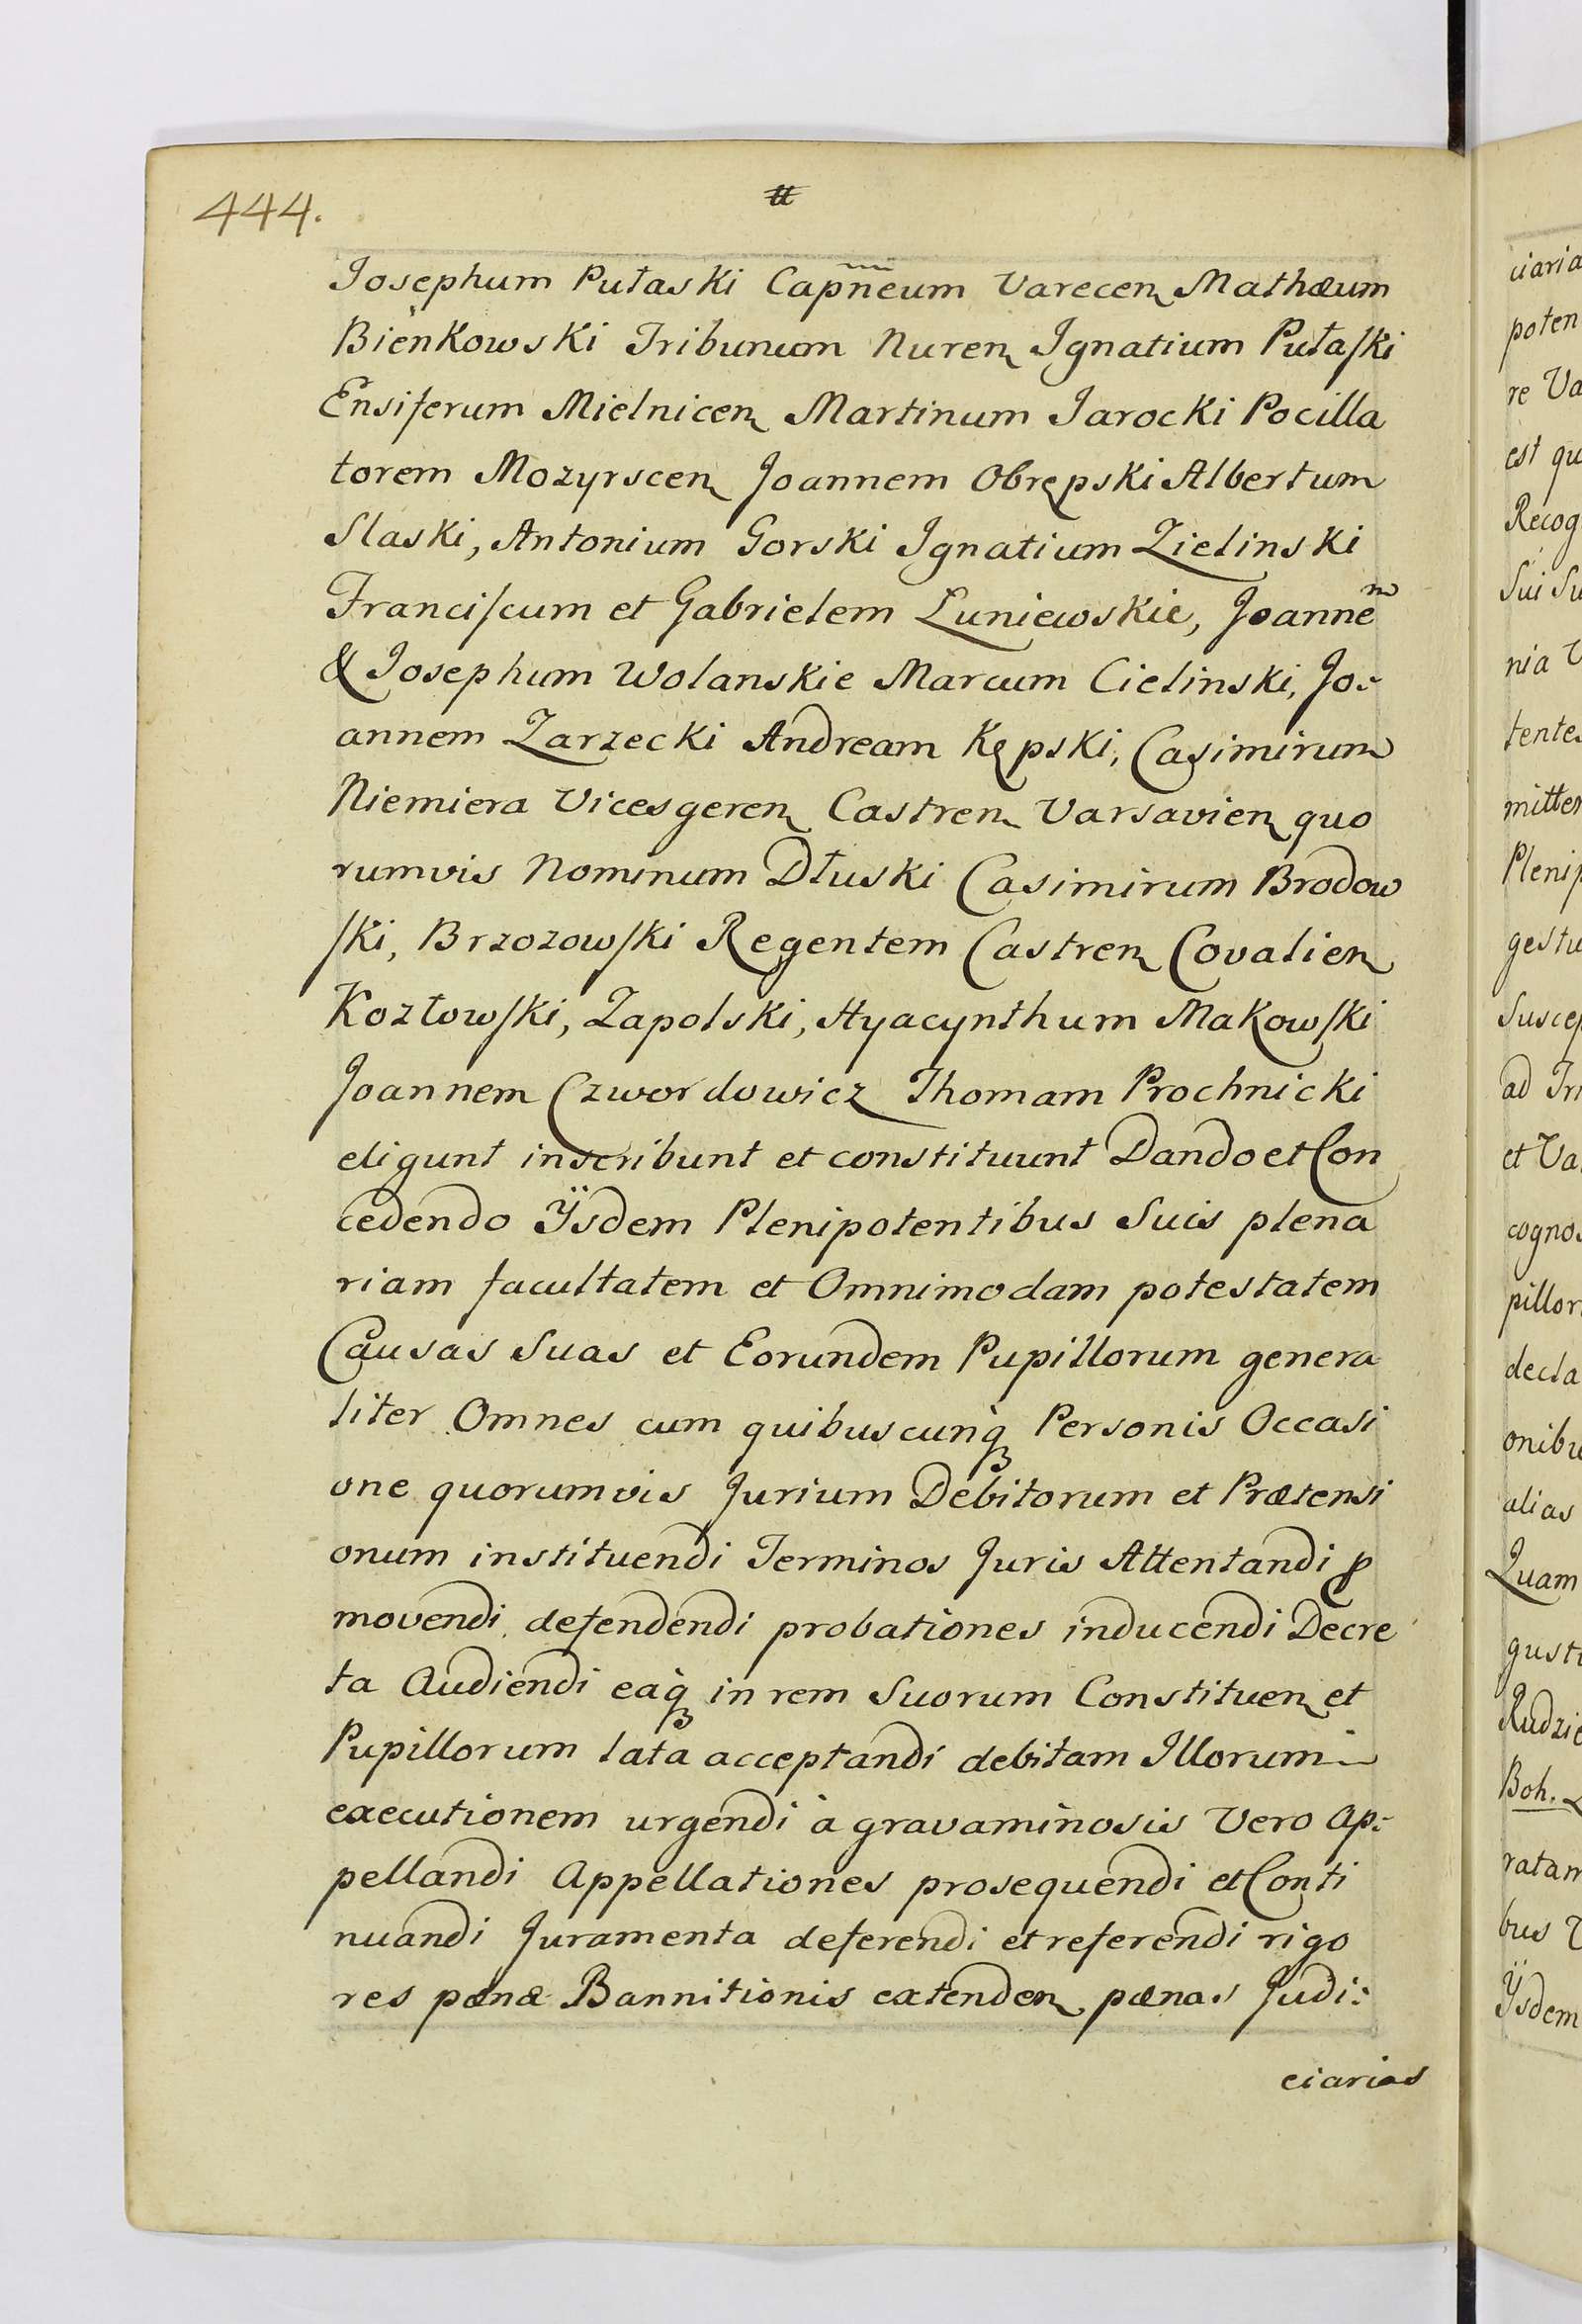 444.
tt
Josephum Pułaski Capn̅eum Varecen Mathæum
Bieńkowski Tribunum Nuren Ignatium Pułaſki
Ensiferum Mielnicen Martinum Jarocki Pocilla
torem Mozyrscen Joannem Obrępski Albertum
Slaski, Antonium Gorski Ignatium Zielinski
Franciſcum et Gabrielem Łuniewskie, Joannem
& Josephum Wolanskie Marcum Cielinski, Jo-
annem Zarzecki Andream Kępski, Casimirum
Niemiera Vicesgeren Castren Varsavien quo
rumvis Nominum Dłuski Casimirum Brodow
ſki, Brzozowſki Regentem Castren Covalien
Kozłowſki, Zapolski, Hyacynthum Makowſki
Joannem Czwordowicz Thomam Prochnicki
eligunt inscribunt et constituunt Dando et Con
cedendo Ÿsdem Plenipotentibus Suis plena
riam facultatem et Omnimodam potestatem
Causas Suas et Eorundem Pupillorum genera
liter Omnes cum quibuscunq̨ Personis Occasi
one quorumvis Jurium Debitorum et Prætensi
onum instituendi Terminos Juris Attentandi p
movendi defendendi probationes inducendi Decre
ta Audiendi eaq̨ in rem Suorum Constituen et
Pupillorum lata acceptandi debitam Illorum
executionem urgendi à gravaminosis Vero Ap-
pellandi Appellationes prosequendi et Conti
nuandi Juramenta deferendi et referendi rigo
res pœnæ Bannitionis extenden pœnas Judi-
ciarias
ciaria
poten
re Va
est qu
Recog
Sui Su
nia V
tentes
mitten
Plenip
gestu
Suscep
ad Tri
et Va
cognos
pillor
decla
onibu
alias
Quam
gusti
Rudzie
Boh.
ratam
bus
Ÿsdem